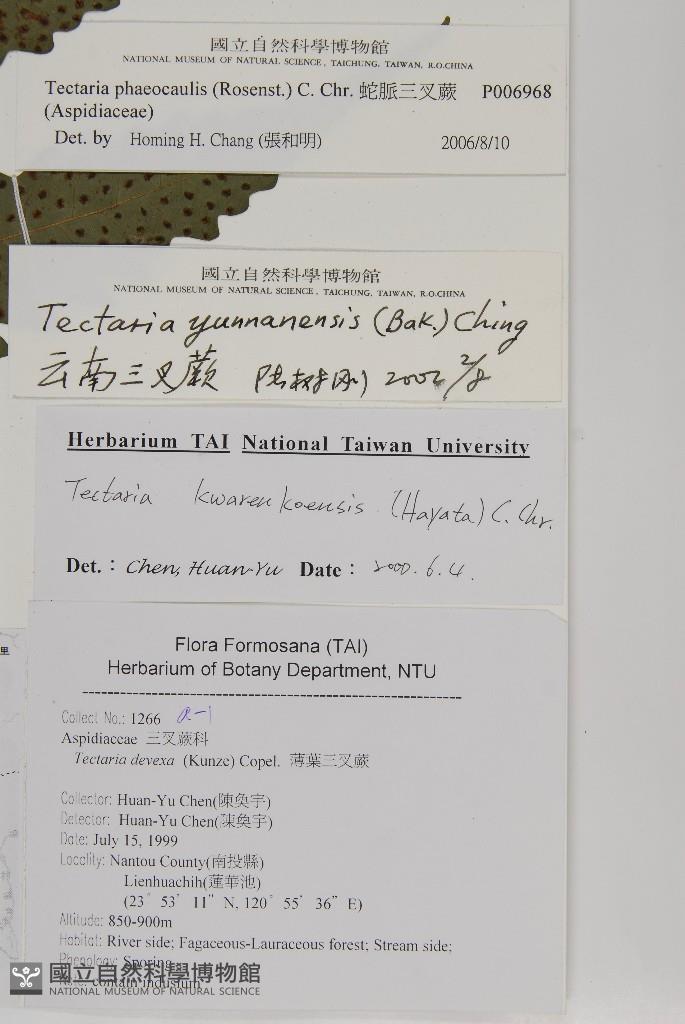 國立自然科學博物館
NATIONAL MUSEUM OF NATURAL SCIENCE, TAICHUNG, TAIWAN, R.O.CHINA
Tectaria phaeocaulis (Rosenst.) C. Chr. 蛇脈三叉蕨 P006968
(Aspidiaceae)
Det. by Homing H. Chang (張和明) 2006/8/10
國立自然科學博物館
NATIONAL MUSEUM OF NATURAL SCIENCE, TAICHUNG, TAIWAN, R.O.CHINA
Tectaria yunnanensis (Bak.) Ching
云南三叉蕨 2002 2/8
Herbarium TAI National Taiwan University
Tectaria kwarenkoensis (Hayata) C. Chr.
Det.: Chen, Huan-Yu Date: 2000.6.4.
里
Flora Formosana (TAI)
Herbarium of Botany Department, NTU
Collect No.: 1266 a-1
Aspidiaceae 三叉蕨科
Tectaria devexa (Kunze) Copel. 薄葉三叉蕨
Collector: Huan-Yu Chen(陳奐宇)
Detector: Huan-Yu Chen(陳奐宇)
Date: July 15, 1999
Locality: Nantou County(南投縣)
Lienhuachih(蓮華池)
(23° 53' 11" N, 120° 55' 36" E)
Altitude: 850-900m
Habitat: River side; Fagaceous-Lauraceous forest; Stream side;
Phenology: Sporing
Note: contain indusium
國立自然科學博物館
NATIONAL MUSEUM OF NATURAL SCIENCE